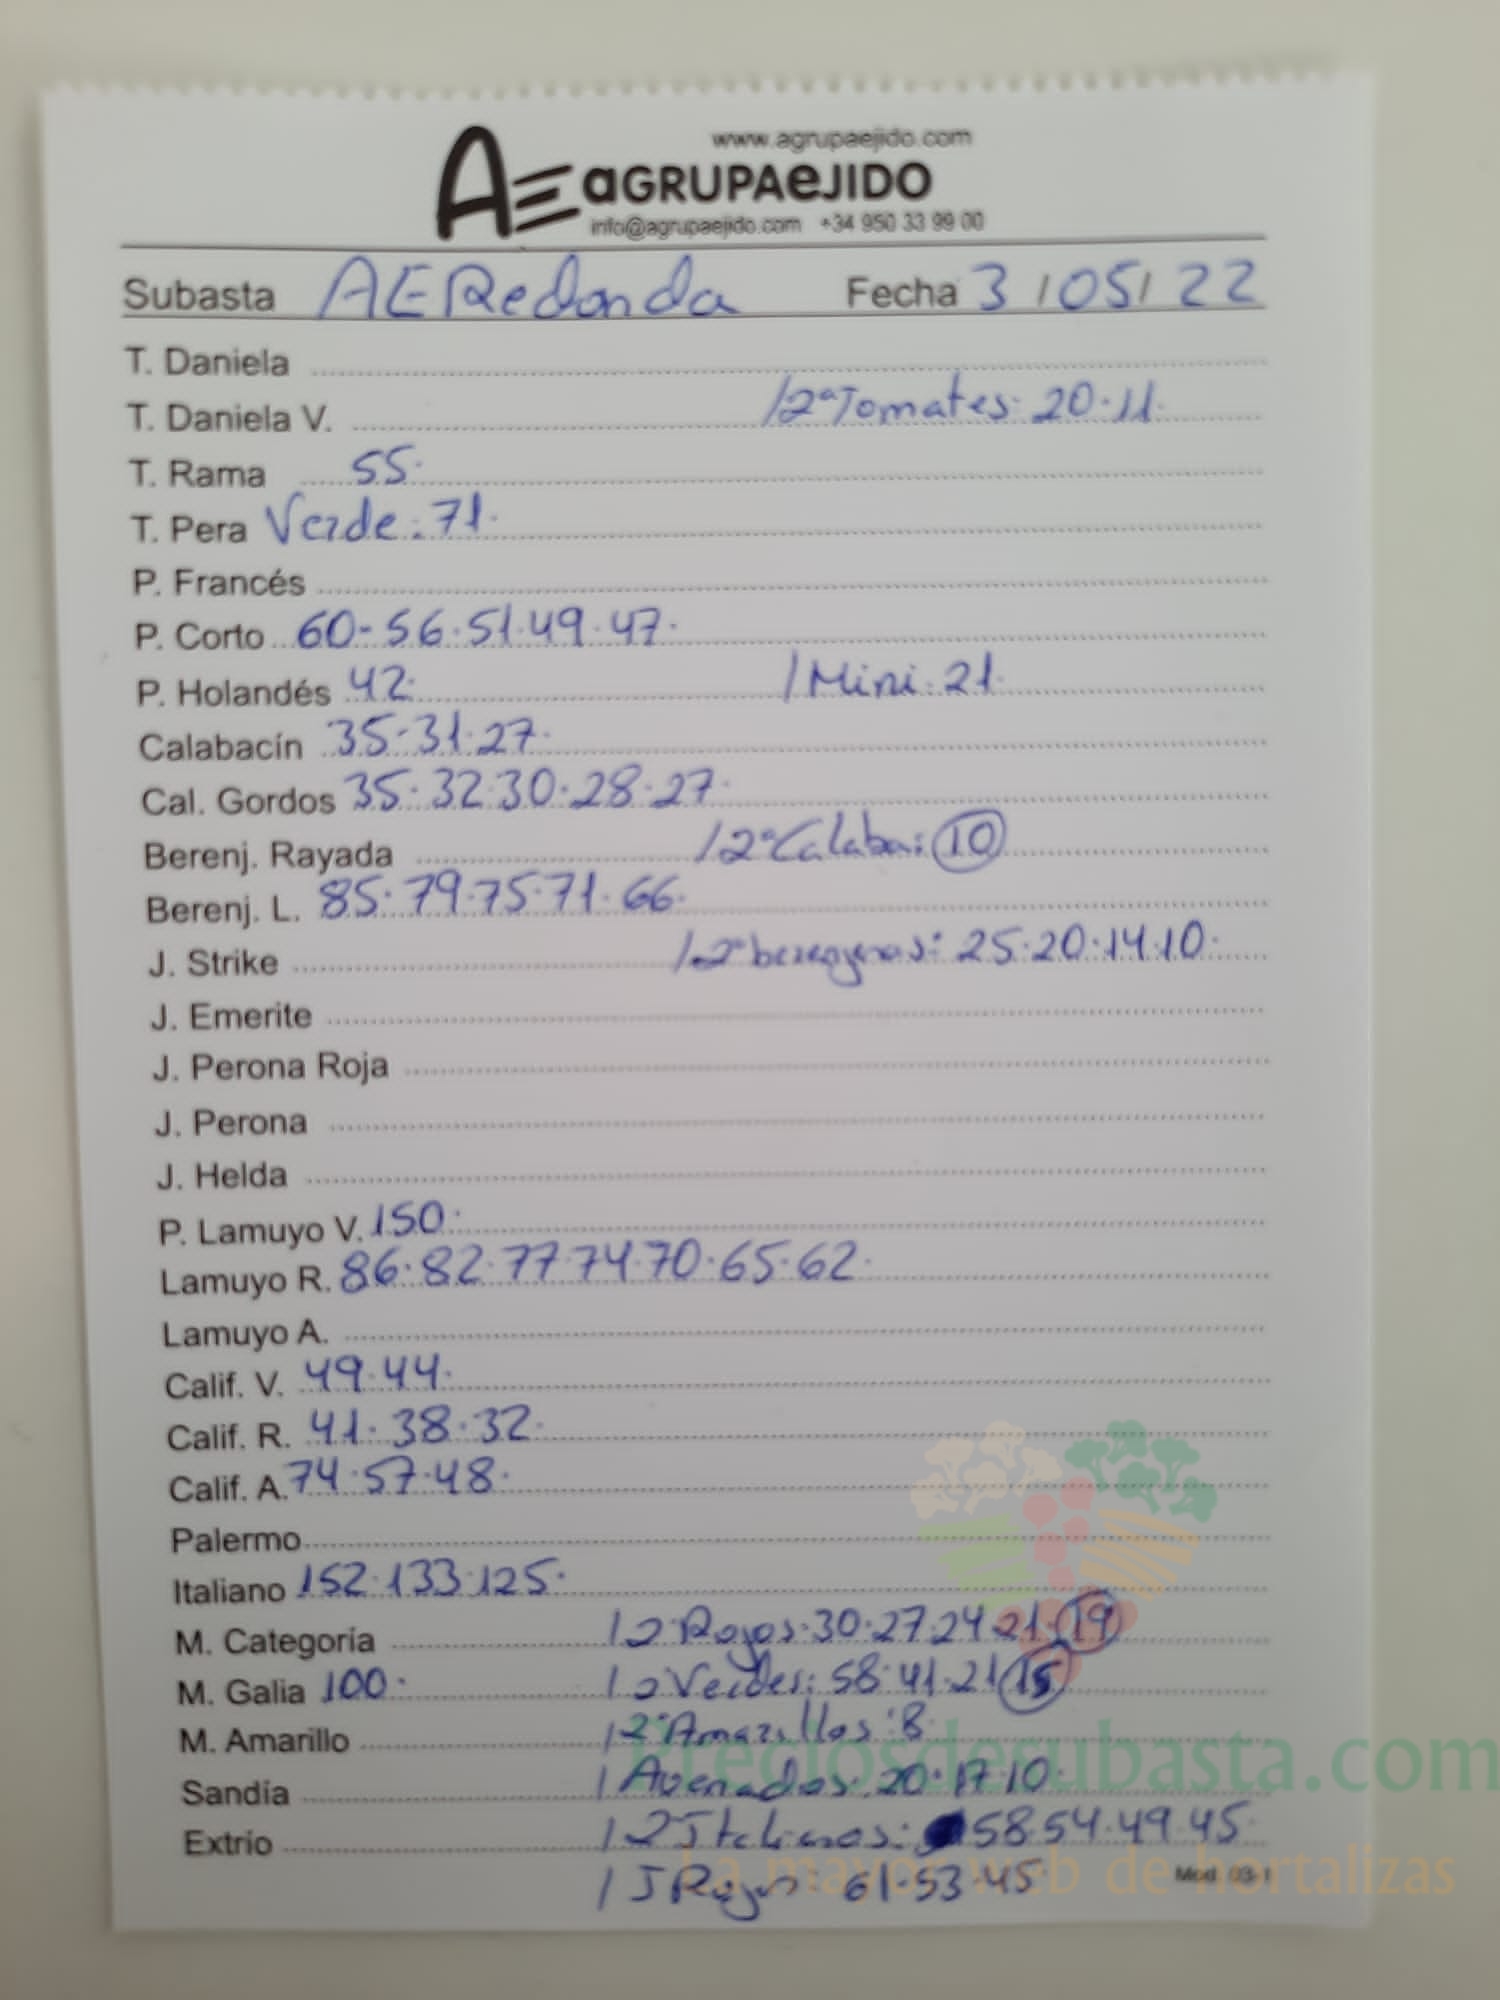 www.agrupaejido.com
AE aGRUPAeJIDO
info@agrupaejido.com +34 950 33 99 00
Subasta AERedonda Fecha 3/05/22
T. Daniela
T. Daniela V. /2ªTomates: 20.11.
T. Rama 55.
T. Pera Verde: 71.
P. Francés
P. Corto 60-56.51.49.47.
P. Holandés 42. /Mini: 21.
Calabacín 35.31.27.
Cal. Gordos 35.32.30.28.27.
Berenj. Rayada /2ªCalaba: 10
Berenj. L. 85.79.75.71.66.
J. Strike /2ªberengenas: 25.20.14.10.
J. Emerite
J. Perona Roja
J. Perona
J. Helda
P. Lamuyo V. 150.
Lamuyo R. 86.82.77.74.70.65.62.
Lamuyo A.
Calif. V. 49.44.
Calif. R. 41.38.32.
Calif. A. 74.57.48.
Palermo
Italiano 152.133.125.
M. Categoría /2ªRojos: 30.27.24.21.19
M. Galia 100. /2Verdes: 58.41.21 15
M. Amarillo /2ªAmarillos: 8
Preciosdesubasta.com
Sandía /Avenados: 20.17.10.
Extrio /2Italianos: 58.54.49.45.
/I Rojos: 61.53.45
La mayor web de hortalizas
Mod. 03-1